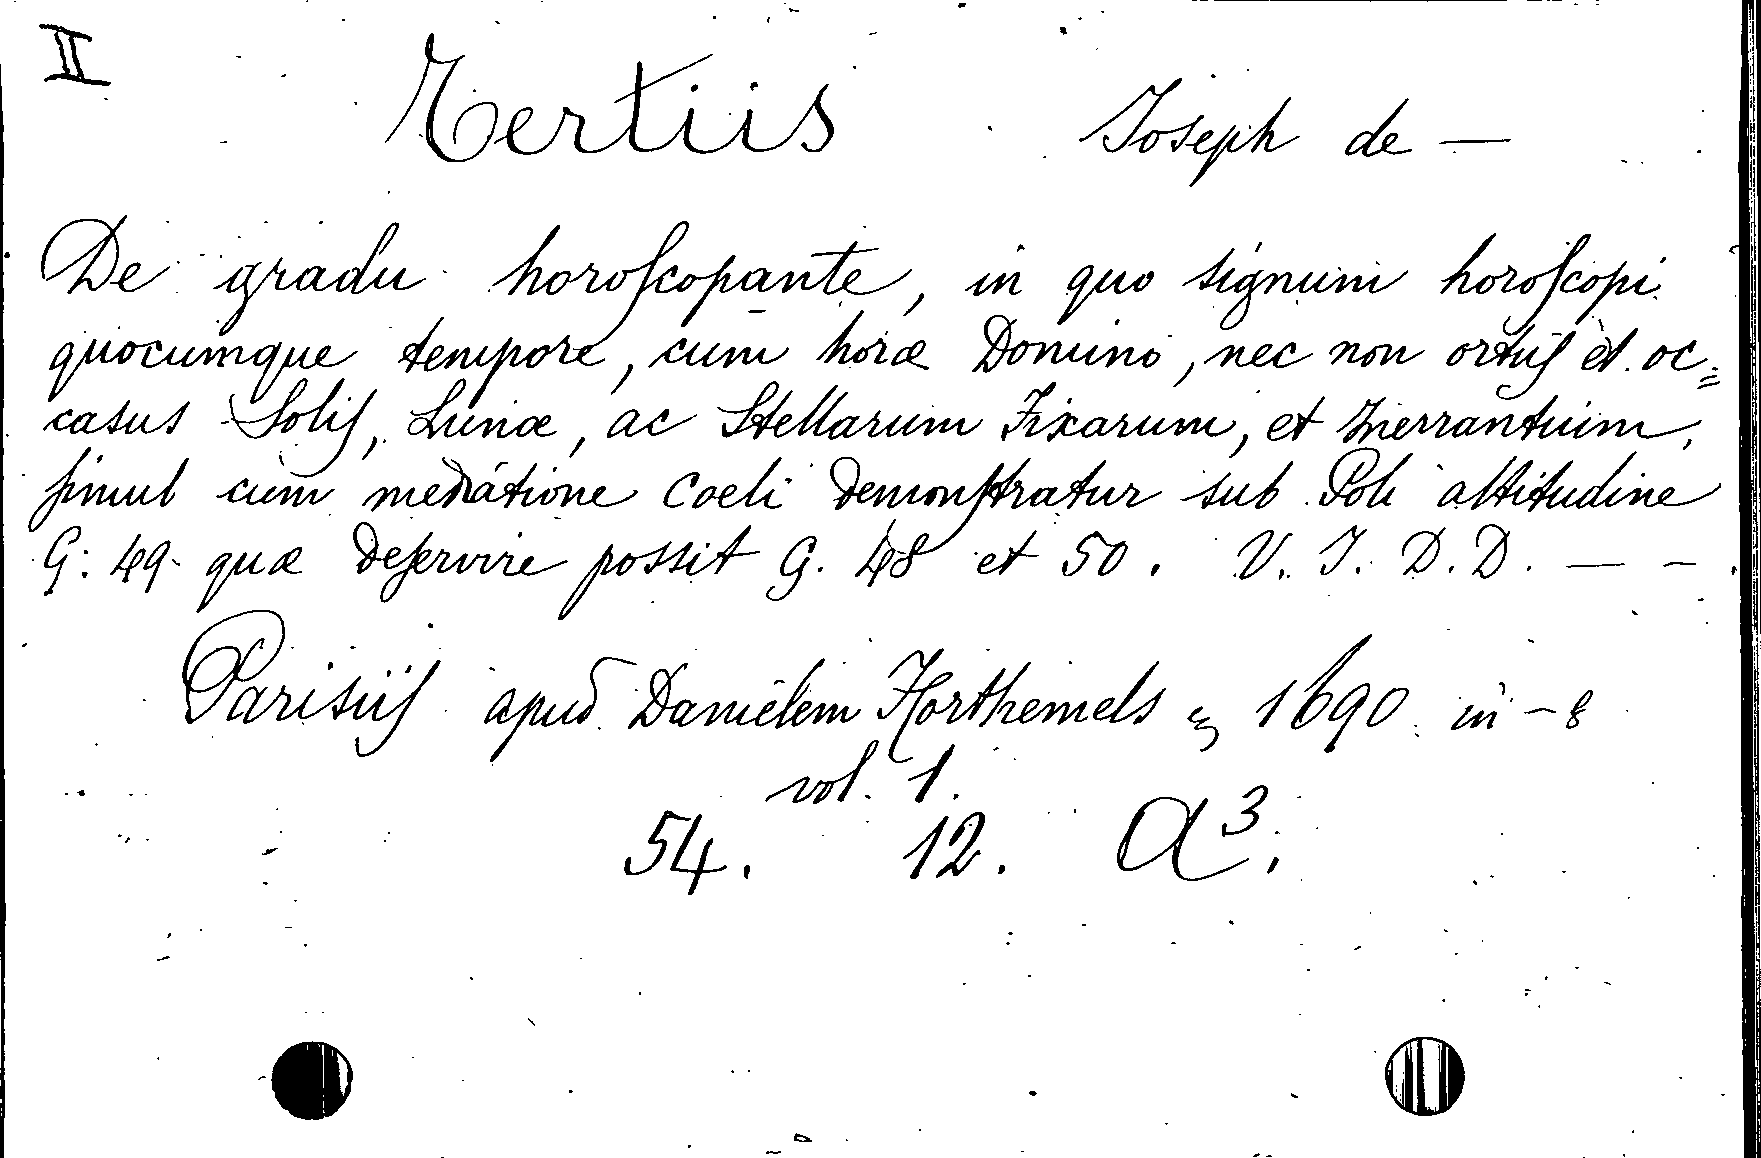 II
Tertiis Joseph de —
De gradu horoſcopante, in quo signum horoſcopi
quocumque tempore, cum horæ Domino, nec non ortuſ et oc=
casus Soliſ, Lunæ, ac Stellarum Fixarum, et Inerrantium,
ſimul cum mediatione Coeli demonſtratur sub Poli altitudine
G: 49. quæ deſervire possit G. 48 et 50. V. J. D. D. — –
Parisiiſ apud Danielem Horthemels 1690 in-8
vol. 1.
54. 12. A³.